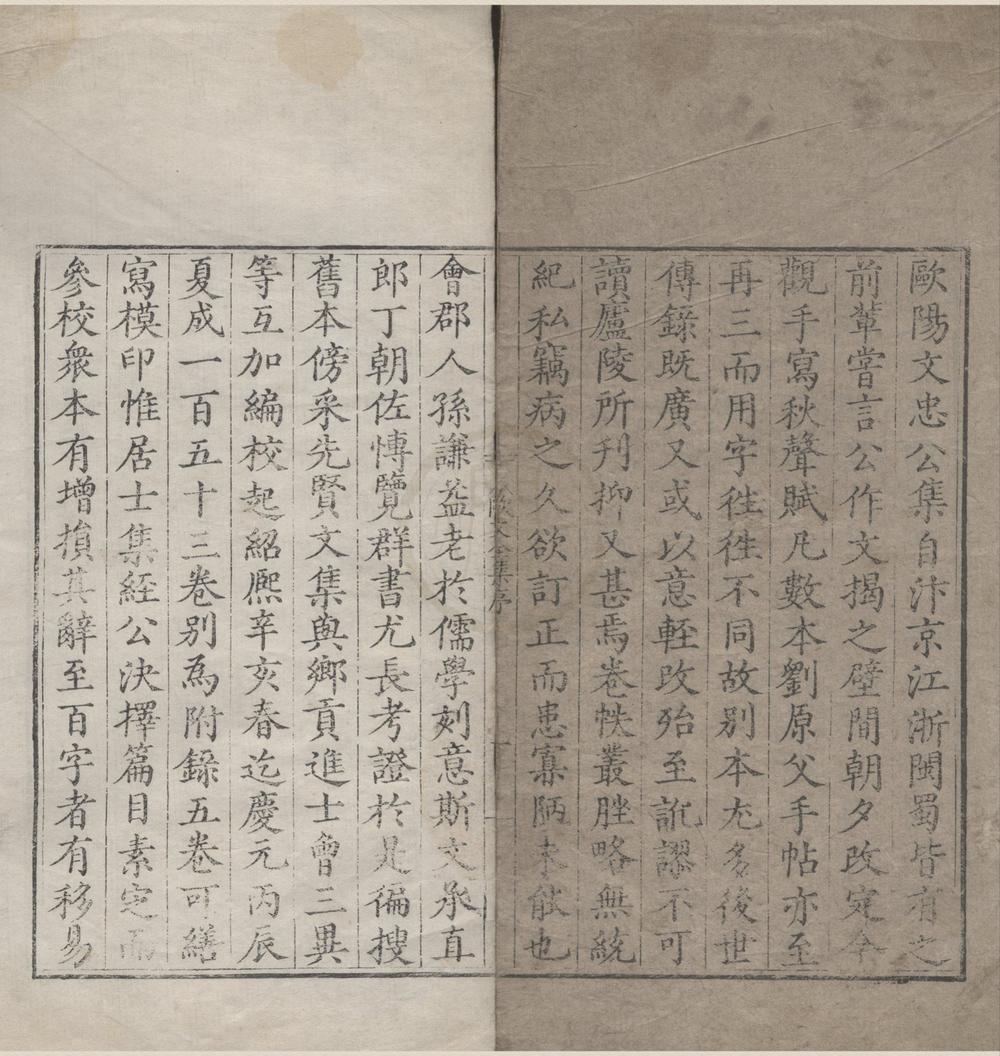 歐陽文忠公集自汴京江浙閩蜀皆有之
前輩嘗言公作文揭之壁間朝夕改定今
觀手寫秋聲賦凡數本劉原父手帖亦至
再三而用字徃徃不同故别本尤多後世
傳錄既廣又或以意輕改殆至訛謬不可
讀廬陵所刋抑又甚焉卷帙叢脞略無統
紀私竊病之久欲訂正而患寡陋未能也
會郡人孫謙益老於儒學刻意斯文承直
郎丁朝佐愽覽群書尤長考證於是徧搜
舊本傍采先賢文集與鄉貢進士曾三異
等互加編校起紹熈辛亥春迄慶元丙辰
夏成一百五十三卷别爲附錄五卷可繕
寫模印惟居士集經公決擇篇目素定而
參校衆本有增損其辭至百字者有移易